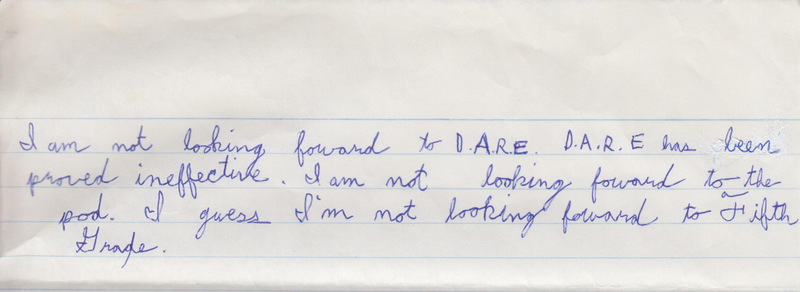 I am not looking foward to D.A.R.E. D.A.R.E has been
proved ineffective. I am not looking foward to the
pod. I guess I'm not looking foward to Fifth
Grade.